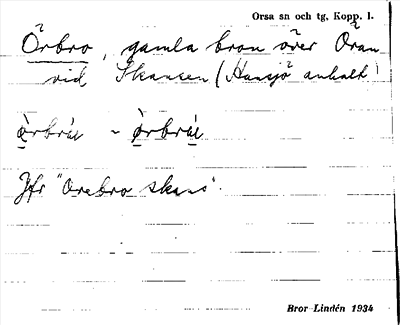 Orsa sn och tg, Kopp. l.
Örbro, gamla bron över Öran
vid Skansen (Hansjö anhalt)
òrbrú ~ òrbrú
Jfr "Orebro skans".
Bror Lindén 1934